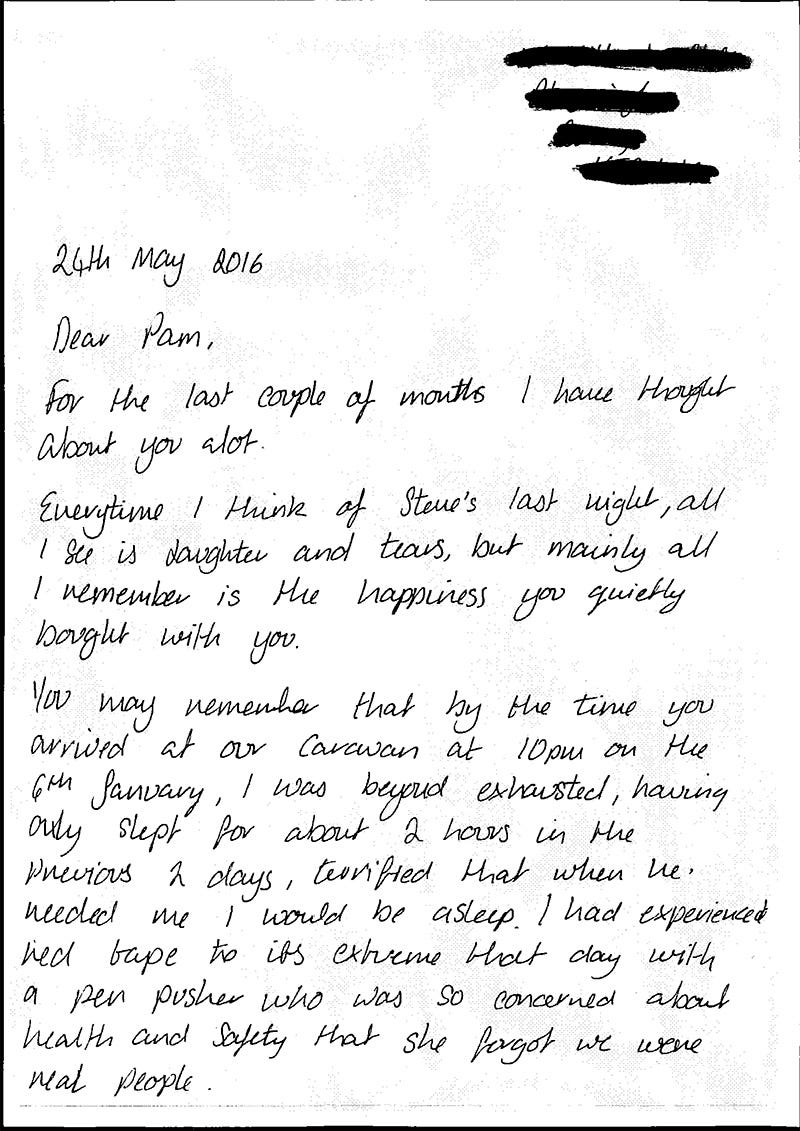 24th May 2016
Dear Pam,
For the last couple of months I have thought
about you alot.
Everytime I think of Steve's last night, all
I see is laughter and tears, but mainly all
I remember is the happiness you quietly
bought with you.
You may remember that by the time you
arrived at our caravan at 10pm on the
6th January, I was beyond exhausted, having
only slept for about 2 hours in the
previous 2 days, terrified that when he
needed me I would be asleep. I had experienced
red tape to its extreme that day with
a pen pusher who was so concerned about
health and safety that she forgot we were
real people.